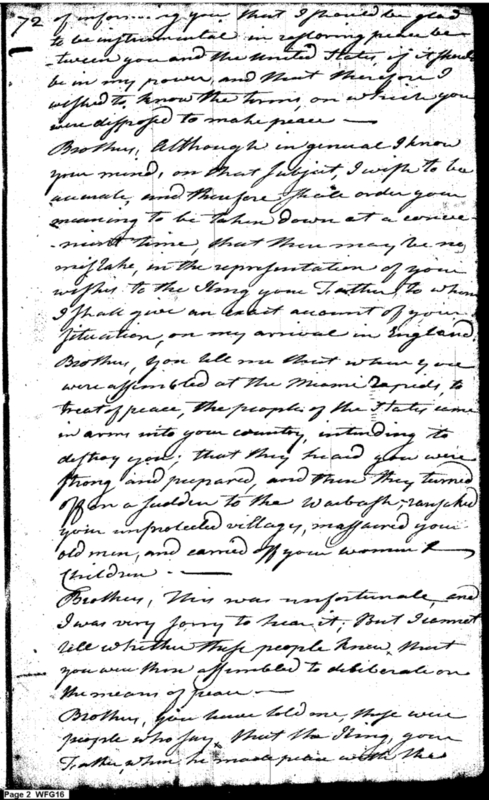 72 of informing you that I should be glad
to be instrumental in restoring peace be
tween you and the United States, if it should
be in my power, and that therefore I
wished to know the terms on which you
were disposed to make peace —
Brothers, Although in general I know
your mind, on that subject, I wish to be
accurate, and therefore shall order your
meaning to be taken down at a conve-
-nient time, that there may be no
mistake, in the representation of your
wishes to the King your Father, to whom
I shall give an exact account of your
situation, on my arrival in England.
Brothers, You tell me that when you
were assembled at the Miami Rapids, to
treat of peace, the people of the States came
in arms into your country, intending to
destroy you; that they heard you were
strong and prepared, and then they turned
off on a sudden to the Waebash, ransacked
your unprotected villages, massacred your
old men, and carried off your women &
Children —
Brothers, this was unfortunate, and
I was very sorry to hear it, But I cannot
tell whether these people knew, that
you were then assembled to deliberate on
the means of peace —
Brothers, you have told me, those were
people who say, that the King, your
Father, when he made peace with the
Page 2 WFG16